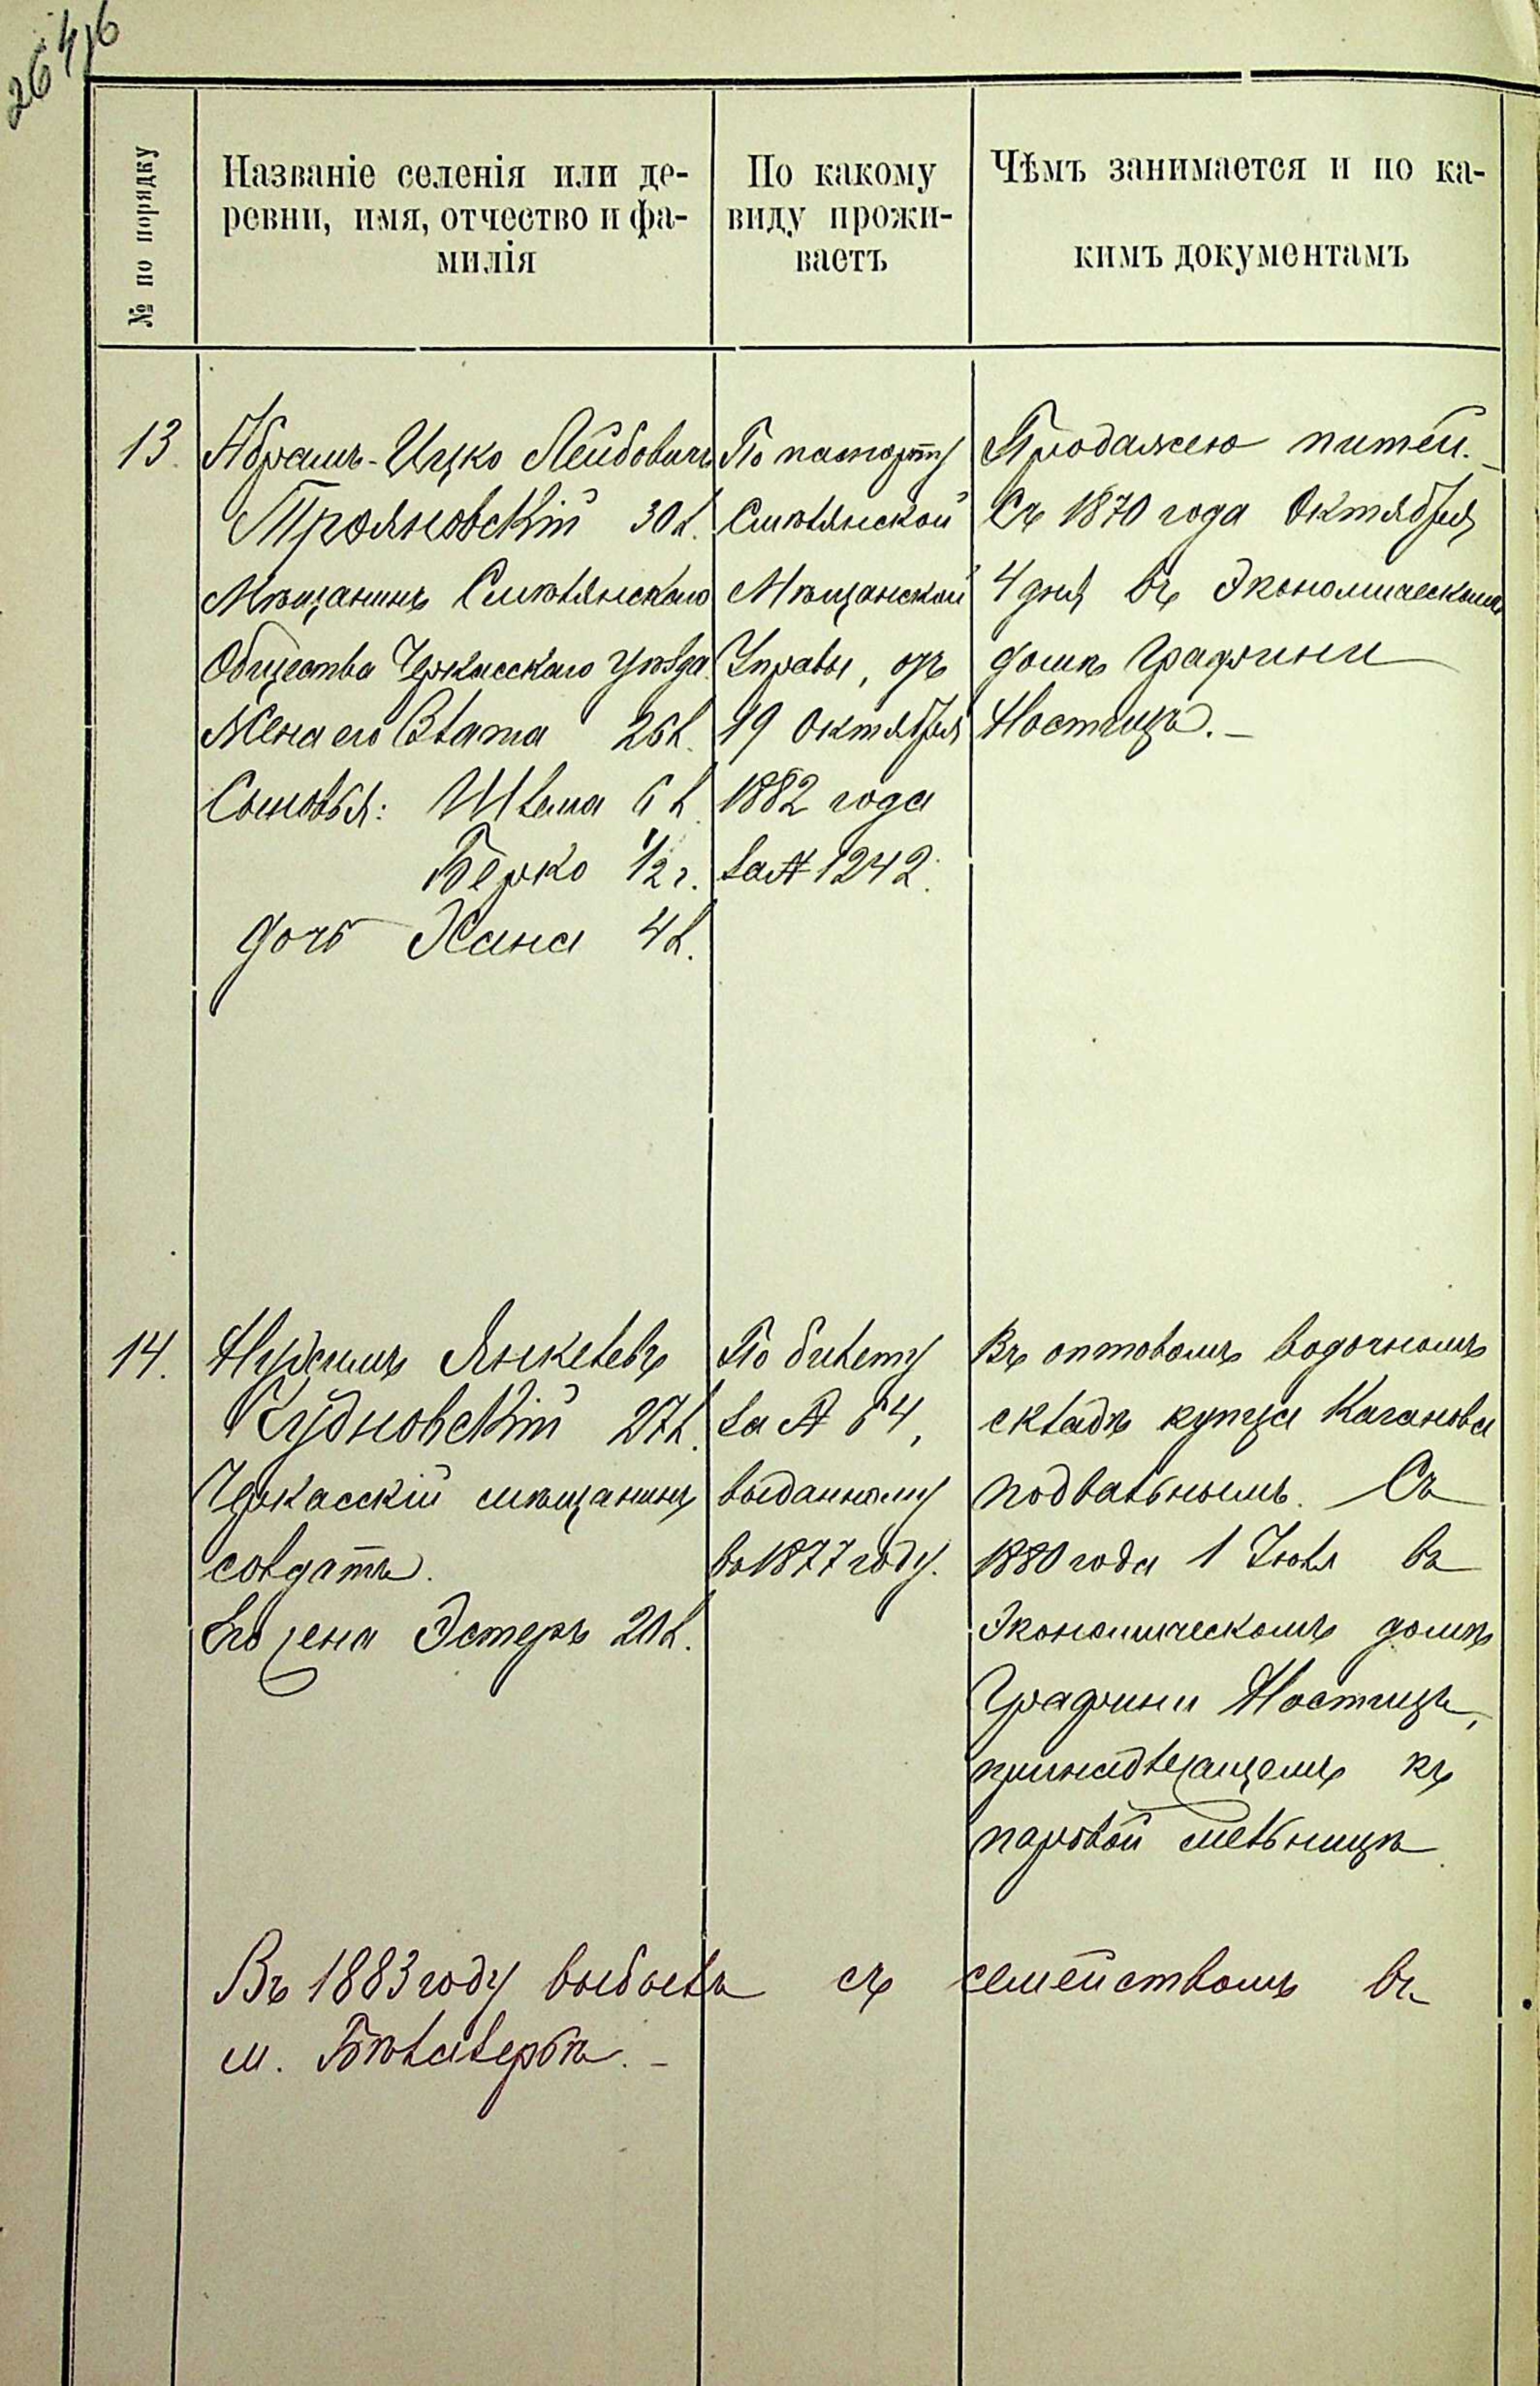 264/6
№ по порядку
Названіе селенія или де-
ревни, имя, отчество и фа-
милія
По какому
виду прожи-
ваетъ
Чѣмъ занимается и по ка-
кимъ документамъ
13.
Абрамъ-Ицко Лейбовичъ
Трояновскій 30 л.
Мѣщанинъ Смѣлянскаго
Общества Черкасскаго уѣзда.
Жена его Злата 26 л.
Сыновья: Шлема 6 л.
Берко 1/2 г.
дочь Хана 4 л.
По паспорту
Смѣлянской
Мѣщанской
Управы, отъ
19 Октября
1882 года
за № 1242.
Продажею питей.
Съ 1870 года Октября
4 дня въ Экономическомъ
домѣ Графини
Ностицъ.–
14.
Нухимъ Янкелевъ
Кудновскій 27 л.
Черкасскій мѣщанинъ
солдатъ.
Его жена Эстеръ 20 л.
По билету
за № 64,
выданному
въ 1877 году.
Въ оптовомъ водочномъ
складѣ купца Каганова
подвальнымъ. Съ
1880 года 1 Іюля въ
Экономическомъ домѣ
Графини Ностицъ,
принадлежащемъ къ
паровой мельницѣ.
Въ 1883 году выбылъ съ семействомъ въ
м. Бѣлаверкѣ.–